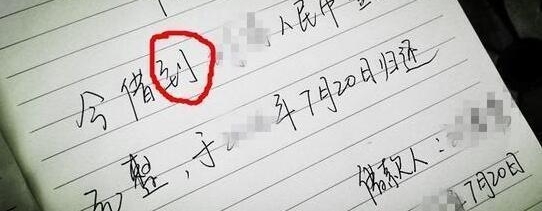 今借到 人民币
元整，于 年7月20日归还
借款人：
年7月20日